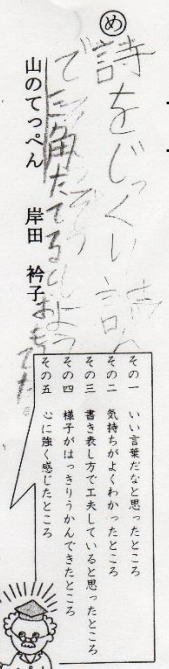 め
詩をじっくり読
で
山のてっぺん 岸田 衿子
その一 いい言葉だなと思ったところ
その二 気持ちがよくわかったところ
その三 書き表し方で工夫していると思ったところ
その四 様子がはっきりうかんできたところ
その五 心に強く感じたところ